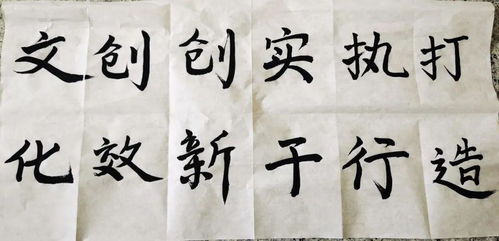 打造
执行
实干
创新
创效
文化